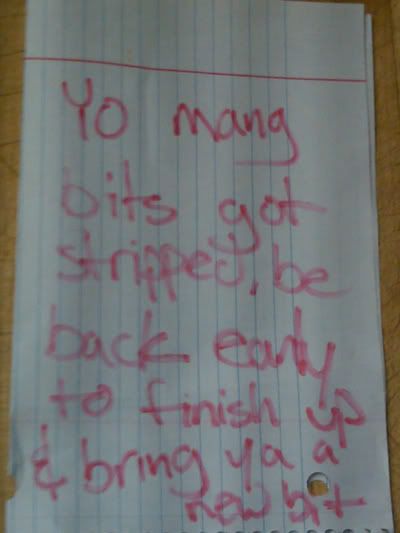 Yo mang
bits got
stripped, be
back early
to finish up
& bring ya a
new bit